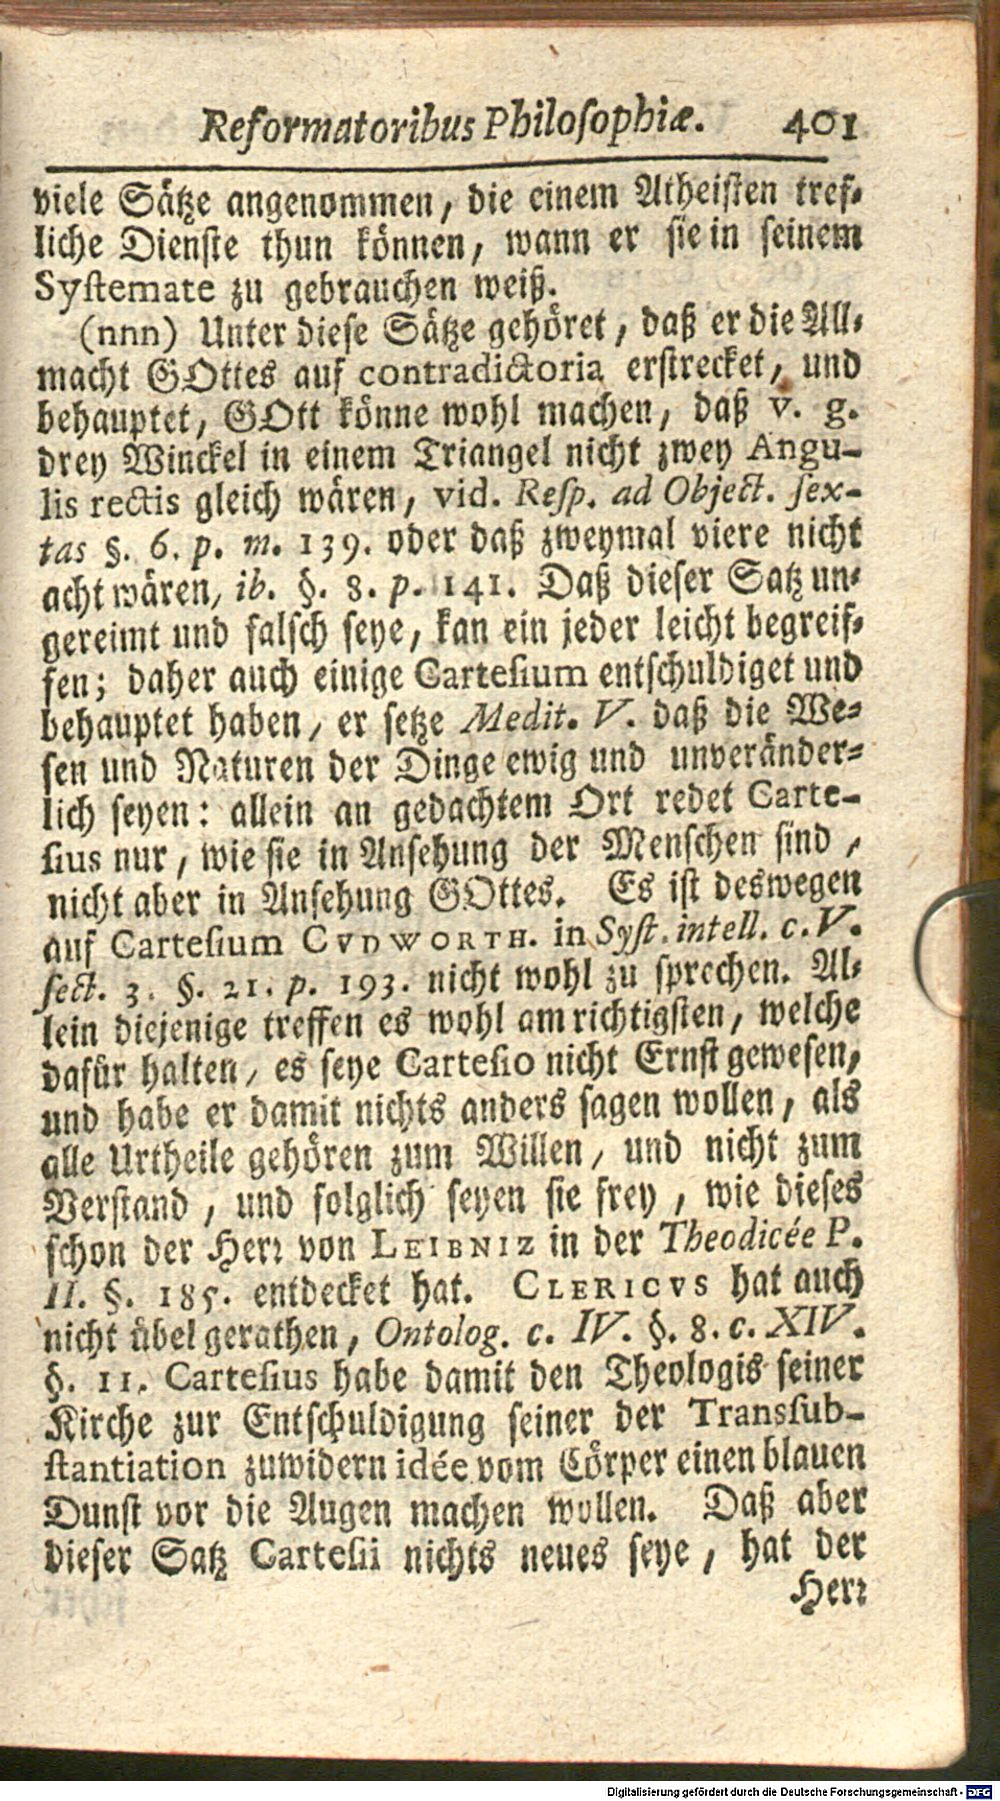 Reformatoribus Philosophiæ. 401
viele Sätze angenommen, die einem Atheisten tref-
liche Dienste thun können, wann er sie in seinem
Systemate zu gebrauchen weiß.
(nnn) Unter diese Sätze gehöret, daß er die All-
macht GOttes auf contradictoria erstrecket, und
behauptet, GOtt könne wohl machen, daß v. g.
drey Winckel in einem Triangel nicht zwey Angu-
lis rectis gleich wären, vid. Resp. ad Object. sex-
tas §. 6. p. m. 139. oder daß zweymal viere nicht
acht wären, ib. §. 8. p. 141. Daß dieser Satz un-
gereimt und falsch seye, kan ein jeder leicht begreif-
fen; daher auch einige Cartesium entschuldiget und
behauptet haben, er setze Medit. V. daß die We-
sen und Naturen der Dinge ewig und unveränder-
lich seyen: allein an gedachtem Ort redet Carte-
sius nur, wie sie in Ansehung der Menschen sind,
nicht aber in Ansehung GOttes. Es ist deswegen
auf Cartesium CVDWORTH. in Syst. intell. c. V.
sect. 3. §. 21. p. 193. nicht wohl zu sprechen. Al-
lein diejenige treffen es wohl am richtigsten, welche
dafür halten, es seye Cartesio nicht Ernst gewesen,
und habe er damit nichts anders sagen wollen, als
alle Urtheile gehören zum Willen, und nicht zum
Verstand, und folglich seyen sie frey, wie dieses
schon der Herr von LEIBNIZ in der Theodicée P.
II. §. 185. entdecket hat. CLERICVS hat auch
nicht übel gerathen, Ontolog. c. IV. §. 8. c. XIV.
§. 11. Cartesius habe damit den Theologis seiner
Kirche zur Entschuldigung seiner der Transsub-
stantiation zuwidern idée vom Cörper einen blauen
Dunst vor die Augen machen wollen. Daß aber
dieser Satz Cartesii nichts neues seye, hat der
Herr
Digitalisierung gefördert durch die Deutsche Forschungsgemeinschaft - DFG